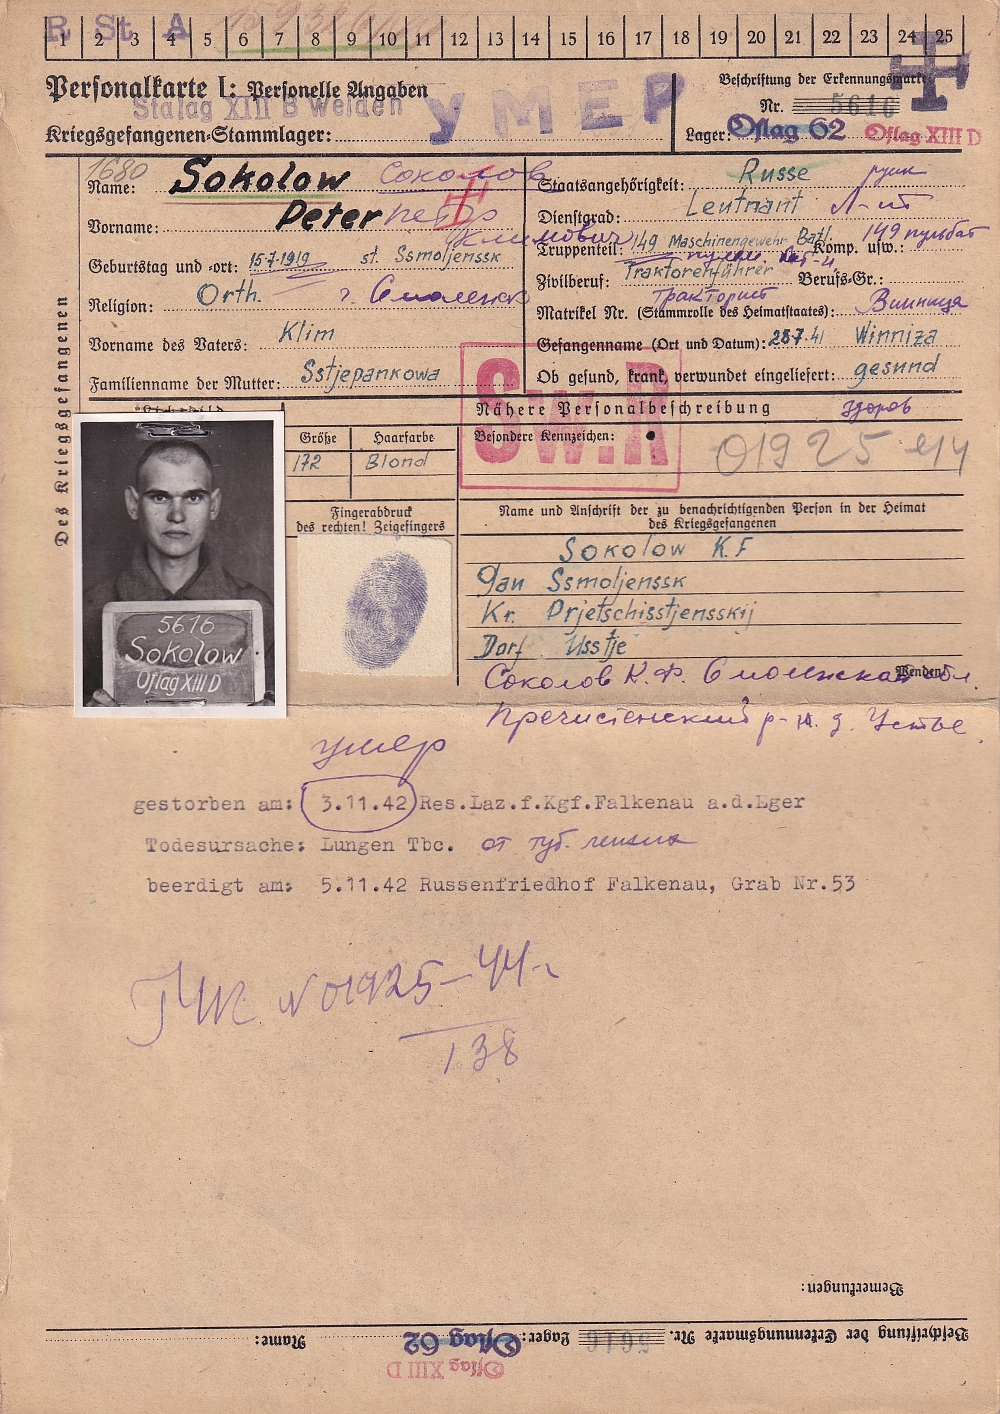 R St A
1 2 3 4 5 6 7 8 9 10 11 12 13 14 15 16 17 18 19 20 21 22 23 24 25
Personalkarte I: Personelle Angaben
Beschriftung der Erkennungsmarke
Stalag XIII B Weiden
УМЕР
Nr. 5616
Kriegsgefangenen-Stammlager:
Lager: Oflag 62 Oflag XIII D
Des Kriegsgefangenen
1680
Name: Sokolow Соколов
Staatsangehörigkeit: Russe русск
Vorname: Peter Петр
Климович
Dienstgrad: Leutnant Л-нт
Truppenteil: 149 Maschinengewehr Batl. Komp. usw.: 149 пульбат
Geburtstag und -ort: 15.7.1919 st. Ssmoljenssk
Zivilberuf: Traktorenführer Berufs-Gr.:
тракторист
Religion: Orth. г. Смоленск
Matrikel Nr. (Stammrolle des Heimatstaates): Винница
Vorname des Vaters: Klim
Gefangennahme (Ort und Datum): 25.7.41 Winniza
Familienname der Mutter: Sstjepankowa
Ob gesund, krank, verwundet eingeliefert: gesund
Nähere Personalbeschreibung здоров
SW.R
Größe Haarfarbe
Besondere Kennzeichen:
172 Blond
01925
Fingerabdruck
des rechten! Zeigefingers
Name und Anschrift der zu benachrichtigenden Person in der Heimat
des Kriegsgefangenen
Sokolow K.F
Gan Ssmoljenssk
Kr. Prjetschisstjensskij
Dorf Usstje
5616
Sokolow
Oflag XIII D
Wenden!
Соколов К.Ф. Смоленская обл.
Пречистенский р-н д. Устье.
умер
gestorben am: 3.11.42 Res.Laz.f.Kgf.Falkenau a.d.Eger
Todesursache: Lungen Tbc. от туб. легких
beerdigt am: 5.11.42 Russenfriedhof Falkenau, Grab Nr.53
N 01925-44г
138
Bemerkungen:
Beschriftung der Erkennungsmarke Nr. 5616 Lager: Oflag 62 Name:
Oflag XIII D